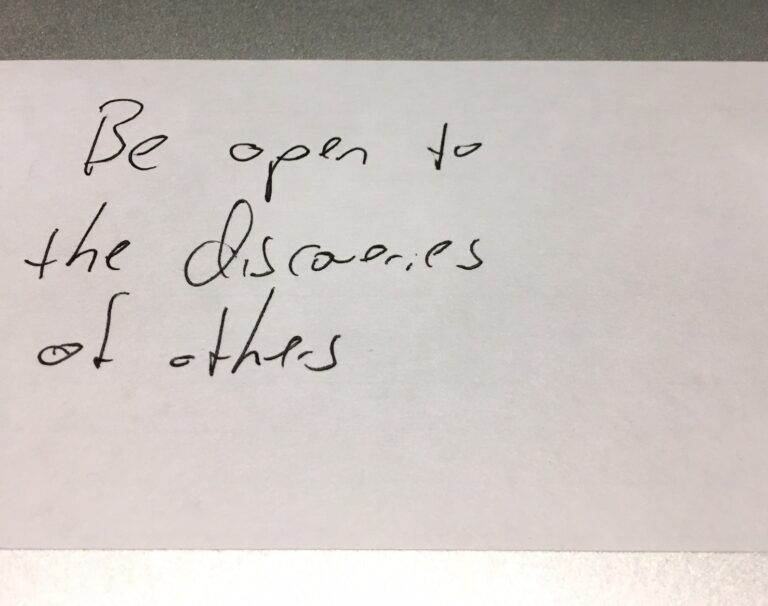 Be open to
the discoveries
of others